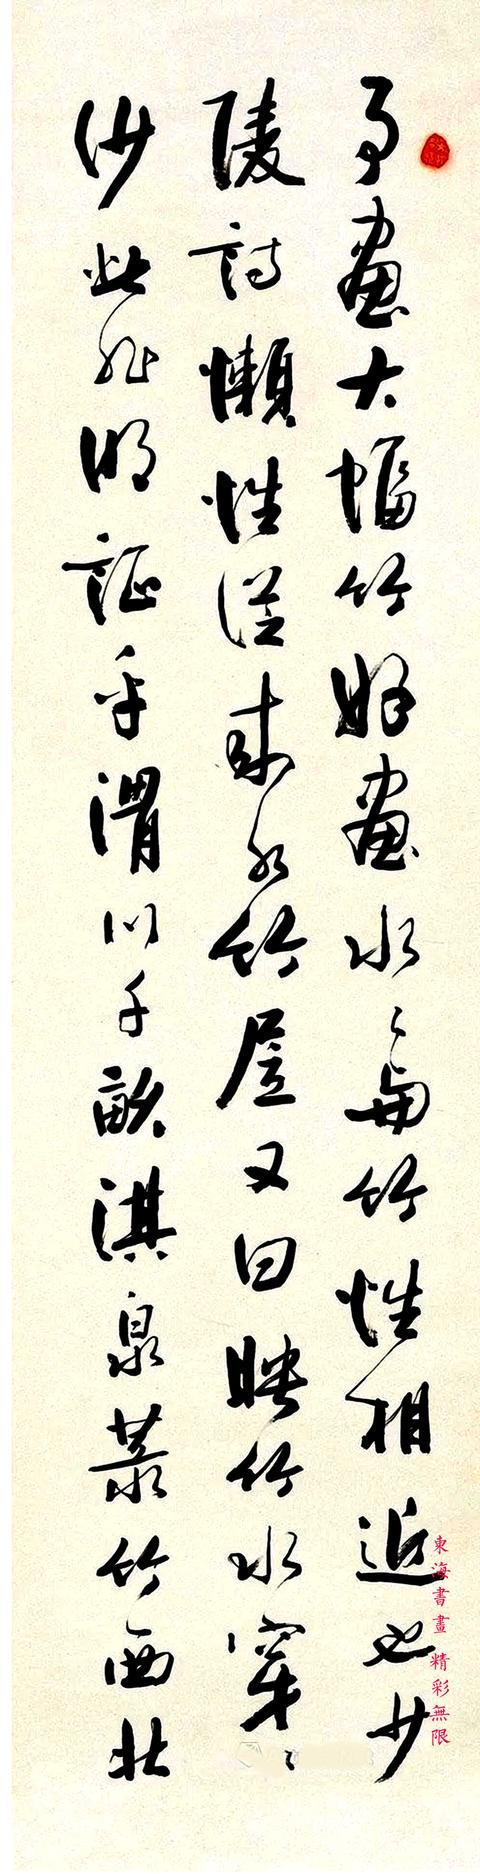 予畫大幅竹好畫水〻與竹性相近也少
陵詩懶性從來水竹居又曰映竹水穿〻
沙此非明証乎渭川千畝淇泉菉竹西北
東海書畫 精彩無限